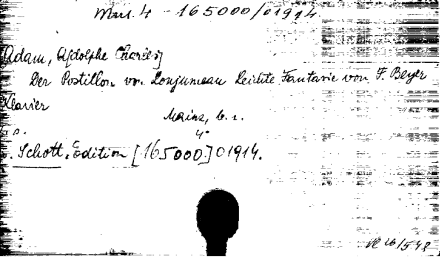 Mus. 4 - 165000/01914
Adam, A[dolphe Charles]
Der Postillon von Lonjumeau Leichte Fantasie von F. Beyer
Klavier
Mainz, b. s.
4°
Schott, Edition [165000.] 01914.